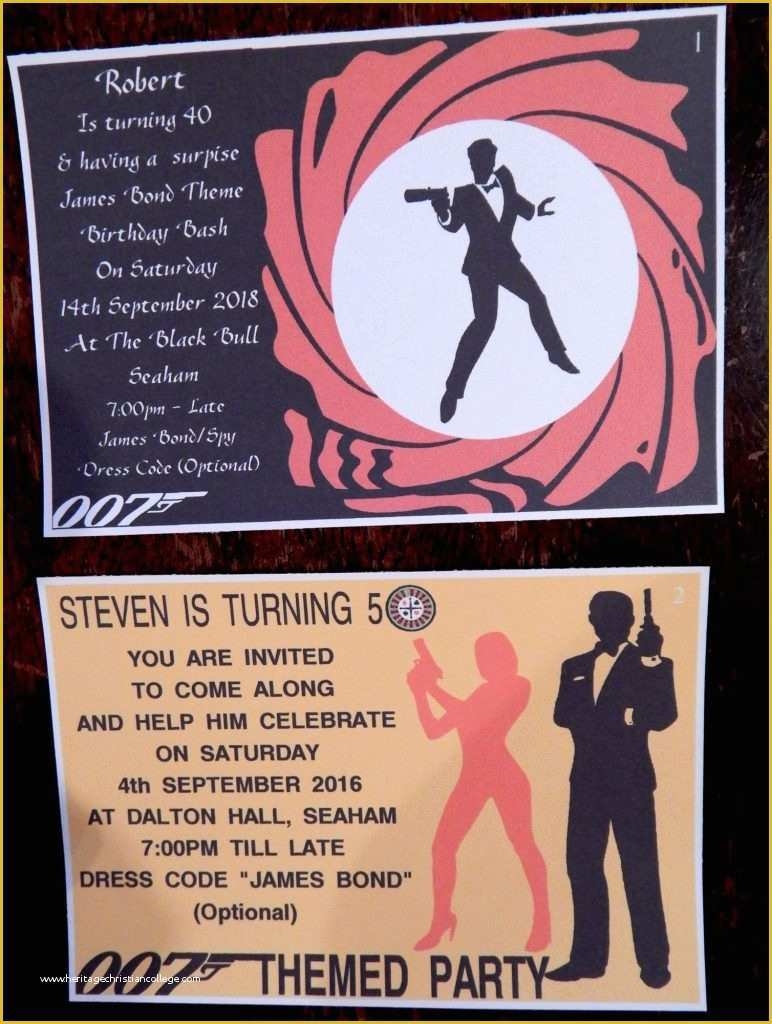 1
Robert
Is turning 40
& having a surpise
James Bond Theme
Birthday Bash
On Saturday
14th September 2018
At The Black Bull
Seaham
7:00pm - Late
James Bond/Spy
Dress Code (Optional)
007
2
STEVEN IS TURNING 50
YOU ARE INVITED
TO COME ALONG
AND HELP HIM CELEBRATE
ON SATURDAY
4th SEPTEMBER 2016
AT DALTON HALL, SEAHAM
7:00PM TILL LATE
DRESS CODE "JAMES BOND"
(Optional)
007 THEMED PARTY
www.heritagechristiancollege.com